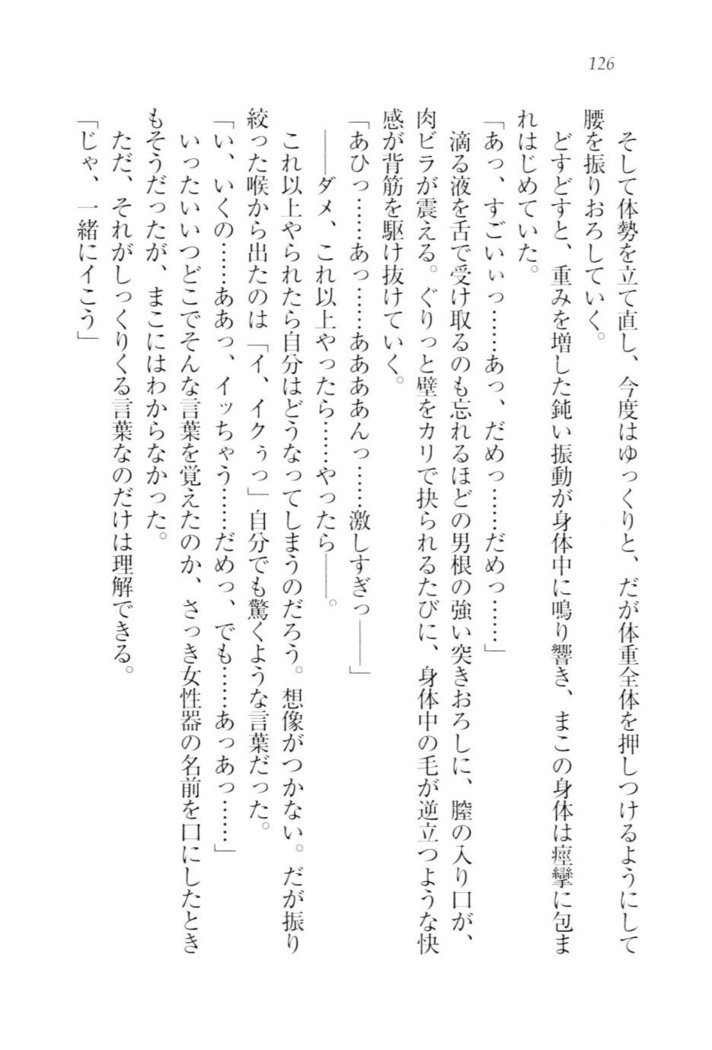 126
そして体勢を立て直し、今度はゆっくりと、だが体重全体を押しつけるようにして
腰を振りおろしていく。
どすどすと、重みを増した鈍い振動が身体中に鳴り響き、まこの身体は痙攣に包ま
れはじめていた。
「あっ、すごいぃっ……あっ、だめっ……だめっ……」
滴る液を舌で受け取るのも忘れるほどの男根の強い突きおろしに、膣の入り口が、
肉ビラが震える。ぐりっと壁をカリで抉られるたびに、身体中の毛が逆立つような快
感が背筋を駆け抜けていく。
「あひっ……あっ……ああああんっ……激しすぎっ――」
――ダメ、これ以上やったら……やったら――。
これ以上やられたら自分はどうなってしまうのだろう。想像がつかない。だが振り
絞った喉から出たのは「イ、イクぅっ」自分でも驚くような言葉だった。
「い、いくの……ああっ、イッちゃう……だめっ、でも……あっあっ……」
いったいいつどこでそんな言葉を覚えたのか、さっき女性器の名前を口にしたとき
もそうだったが、まこにはわからなかった。
ただ、それがしっくりくる言葉なのだけは理解できる。
「じゃ、一緒にイこう」